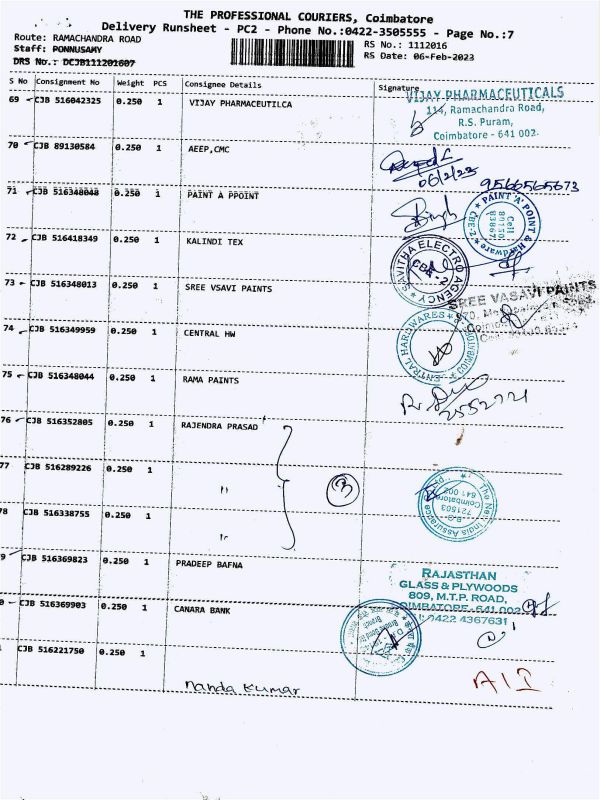 THE PROFESSIONAL COURIERS, Coimbatore
Delivery Runsheet - PC2 - Phone No.:0422-3505555 - Page No.:7
Route: RAMACHANDRA ROAD
RS No.: 1112016
Staff: PONNUSAMY
RS Date: 06-Feb-2023
DRS No.: DCJB111201607
S No Consignment No Weight PCS Consignee Details Signature
69 CJB 516042325 0.250 1 VIJAY PHARMACEUTILCA
VIJAY PHARMACEUTICALS
114, Ramachandra Road,
R.S. Puram,
Coimbatore - 641 002.
70 CJB 89130584 0.250 1 AEEP,CMC
06/2/23
9566565673
71 CJB 516348048 0.250 1 PAINT A PPOINT
PAINT 'A' POINT & Hardware
CBE-2
Cell
72 CJB 516418349 0.250 1 KALINDI TEX
SAVITHA ELECTRO AGENCY
CBE-2
73 CJB 516348013 0.250 1 SREE VSAVI PAINTS
SREE VASAVI PAINTS
74 CJB 516349959 0.250 1 CENTRAL HW
CENTRAL HARDWARES
75 CJB 516348044 0.250 1 RAMA PAINTS
2552721
76 CJB 516352805 0.250 1 RAJENDRA PRASAD
77 CJB 516289226 0.250 1 "
3
The New India Assurance
Coimbatore
641 002
721503
78 CJB 516338755 0.250 1 "
9 CJB 516369823 0.250 1 PRADEEP BAFNA
RAJASTHAN
GLASS & PLYWOODS
809, M.T.P. ROAD,
COIMBATORE - 641 002
0422 4367631
0 CJB 516369903 0.250 1 CANARA BANK
Branch
CJB 516221750 0.250 1
nanda kumar